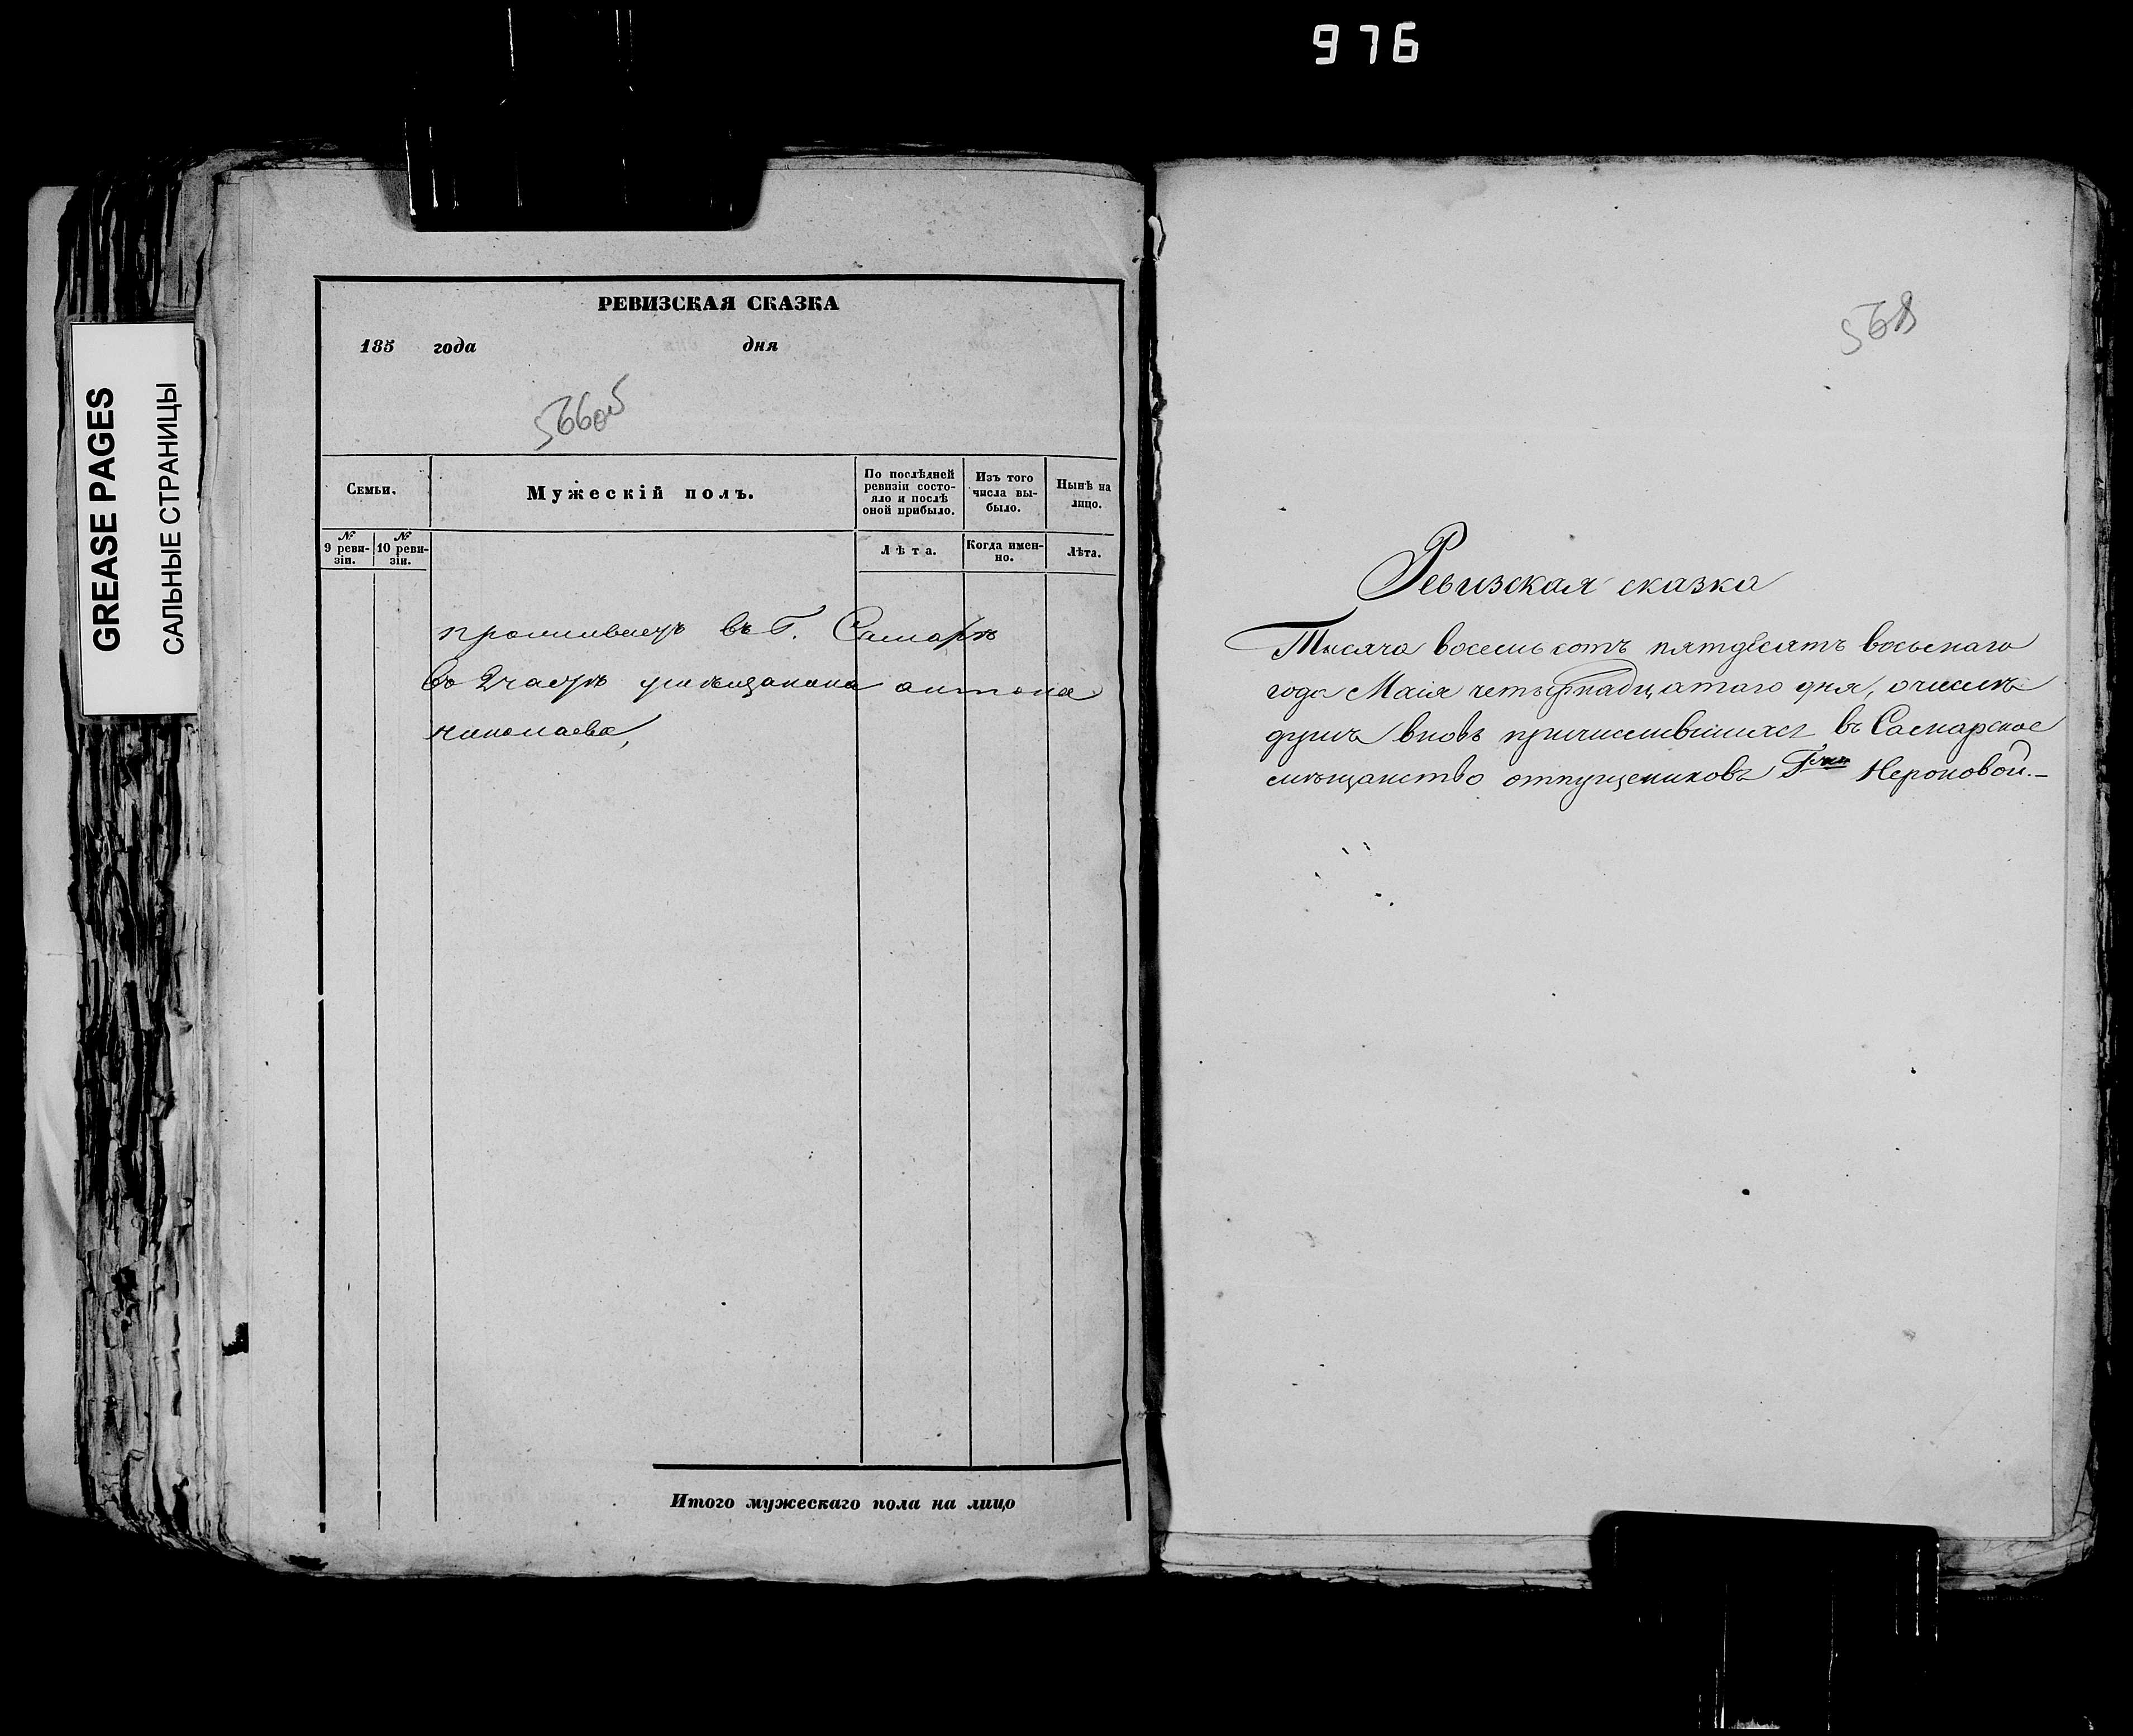 976
GREASE PAGES
САЛЬНЫЕ СТРАНИЦЫ
РЕВИЗСКАЯ СКАЗКА
185 года дня
566об
Семьи.
Мужескій полъ.
По послѣдней ревизіи состояло и послѣ оной прибыло.
Изъ того числа выбыло.
Нынѣ на лицо.
№ 9 ревизіи.
№ 10 ревизіи.
Лѣта.
Когда именно.
Лѣта.
проживаетъ въ Г. Самарѣ
во 2 части у мѣщанина антона
николаева,
Итого мужескаго пола на лицо
568
Ревизская сказка
Тысяча восемь сотъ пятдесятъ восьмаго
года Маія четырнадцатаго дня, о числѣ
душъ вновь причислившихся въ Самарское
мѣщанство отпущениковъ Г-жи Нероновой.—